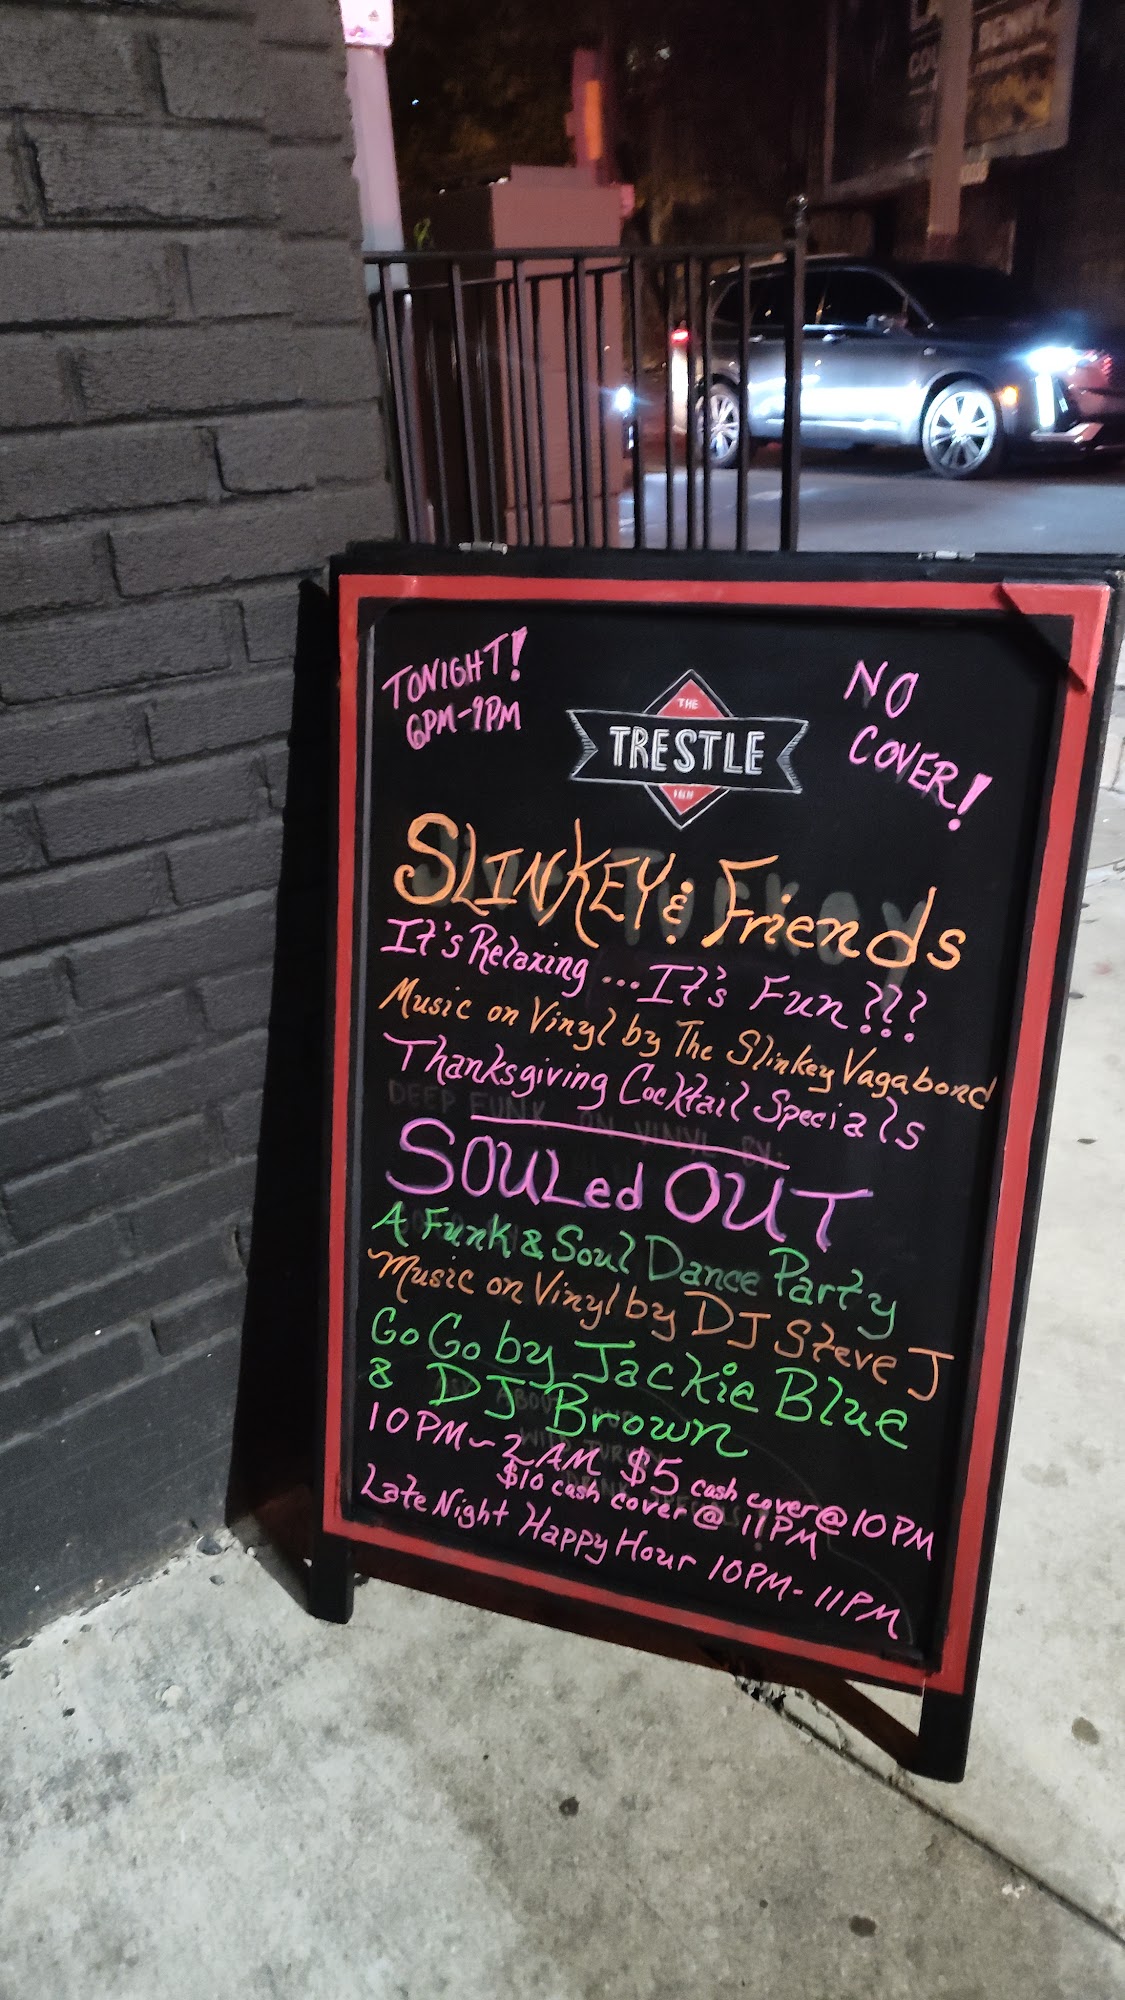 TONIGHT!
6PM-9PM
NO
COVER!
THE
TRESTLE
INN
SLINKEY & Friends
It's Relaxing ... It's Fun???
Music on Vinyl by The Slinkey Vagabond
Thanksgiving Cocktail Specials
DEEP FUNK ON VINYL BY:
SOULed OUT
A Funk & Soul Dance Party
Music on Vinyl by DJ Steve J
Go Go by Jackie Blue
& DJ Brown
10PM-2AM $5 cash cover @ 10PM
$10 cash cover @ 11PM
Late Night Happy Hour 10PM-11PM